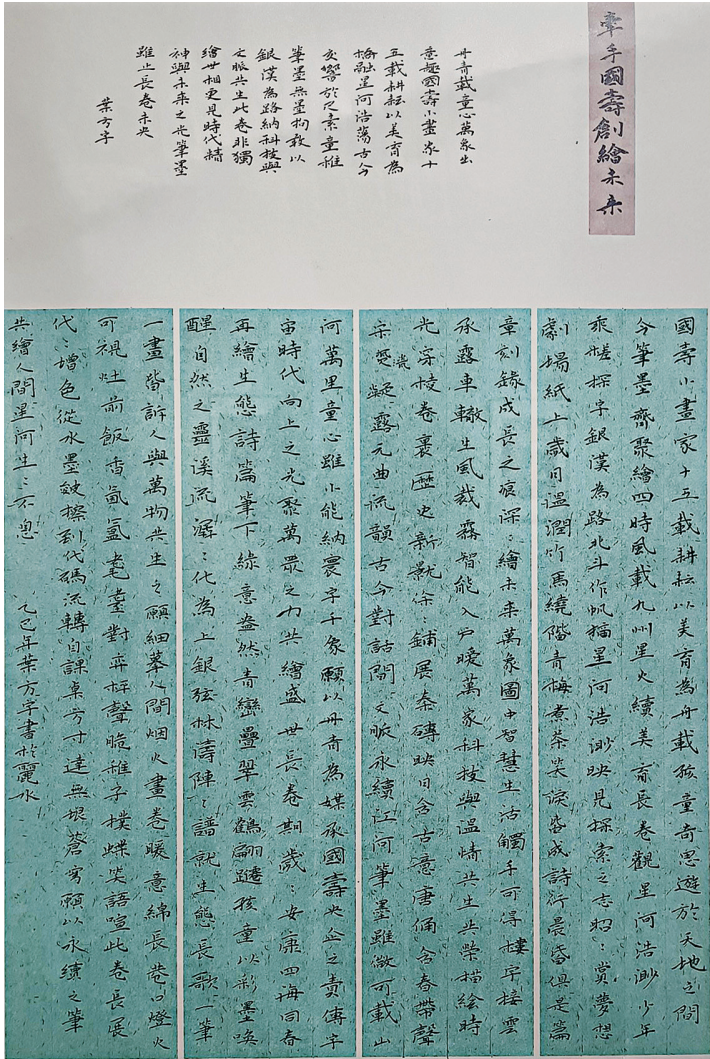 牽手國壽創繪未来
丹青載童心萬象出
意趣國壽小畫家十
五載耕耘以美育為
橋融星河浩蕩古今
交響於尺素童稚
筆墨無墨拘敢以
銀漢為路納科技與
文脈共生此卷非獨
繪世相更見時代精
神與未来之光筆墨
雖止長卷未央
葉方字
國壽小畫家十五載耕耘以美育為舟載孩童奇思遊於天地之間
今筆墨齊聚繪四時風載九州星火續美育長卷觀星河浩渺少年
乘槎探宇銀漢為路北斗作帆猫星河浩渺映見探索之志昭:賞夢想
劇場紙上歲月温潤竹馬繞階青梅煮茶笑淚皆成詩行晨昏俱是篇
章刻錄成長之痕深:繪未来萬象圖中智慧生活觸手可得樓宇接雲
承露車轍生風裁霧智能入戶暖萬家科技與温情共生共榮描绘時
光穿梭卷裏歷史新歌徐:鋪展秦磚映日含古意唐俑含春帶聲
宋瓷凝露元曲流韻古今對話間文脈永續江河筆墨雖微可載山
河萬里童心雖小能納寰宇千象願以丹青為媒承國壽央企之責傳宇
宙時代向上之光聚萬眾之力共繪盛世長卷期歲:安康四海同春
再繪生態詩篇筆下綠意盎然青巒疊翠雲鶴翩躚孩童以彩墨喚
醒自然之靈溪流潺:化為上銀弦林濤陣:譜就生態長歌一筆
一畫皆訴人與萬物共生之願細摹人間烟火畫卷暖意綿長巷口燈火
可視灶前飯香氤氲耄耋對弈枰聲脆稚子撲蝶笑語喧此卷長展
代:增色從水墨皴擦到代碼流轉自課桌方寸達無垠蒼穹願以永續之筆
共繪人間星河生:不息
乙巳年葉方字書於麗水